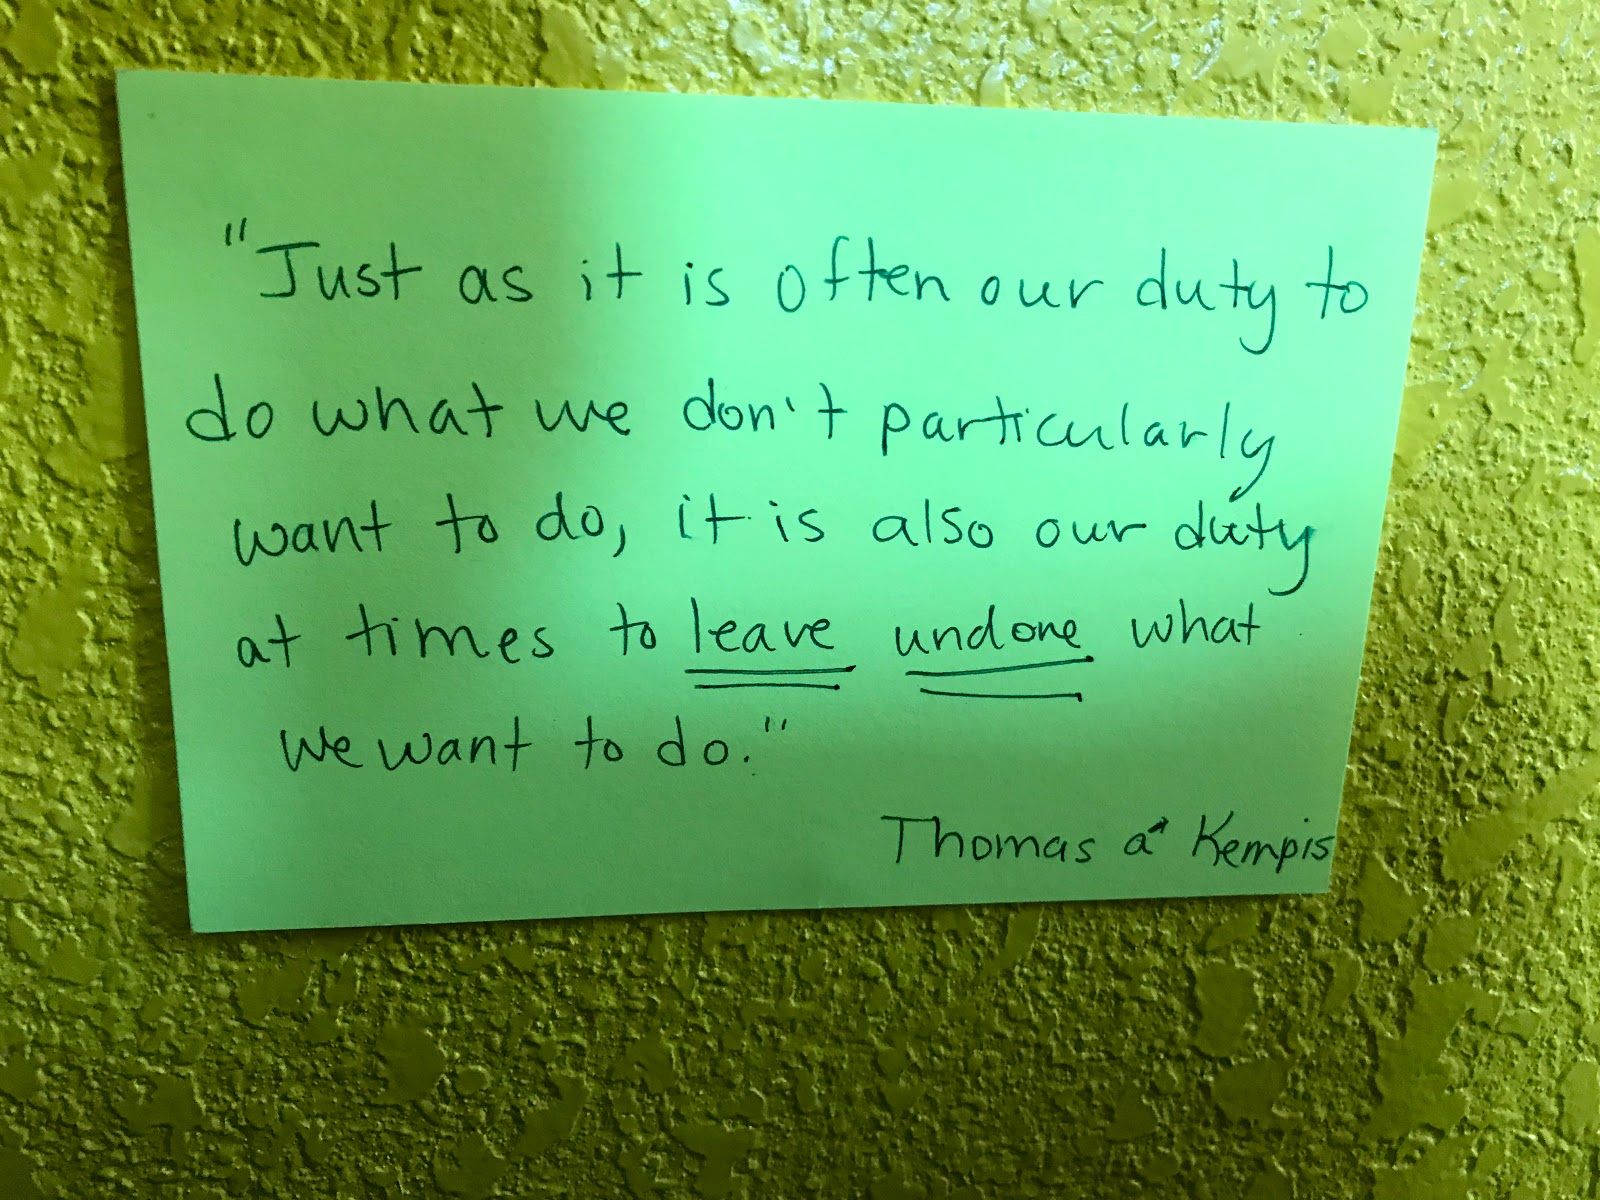 "Just as it is often our duty to
do what we don't particularly
want to do, it is also our duty
at times to leave undone what
we want to do."
Thomas à Kempis